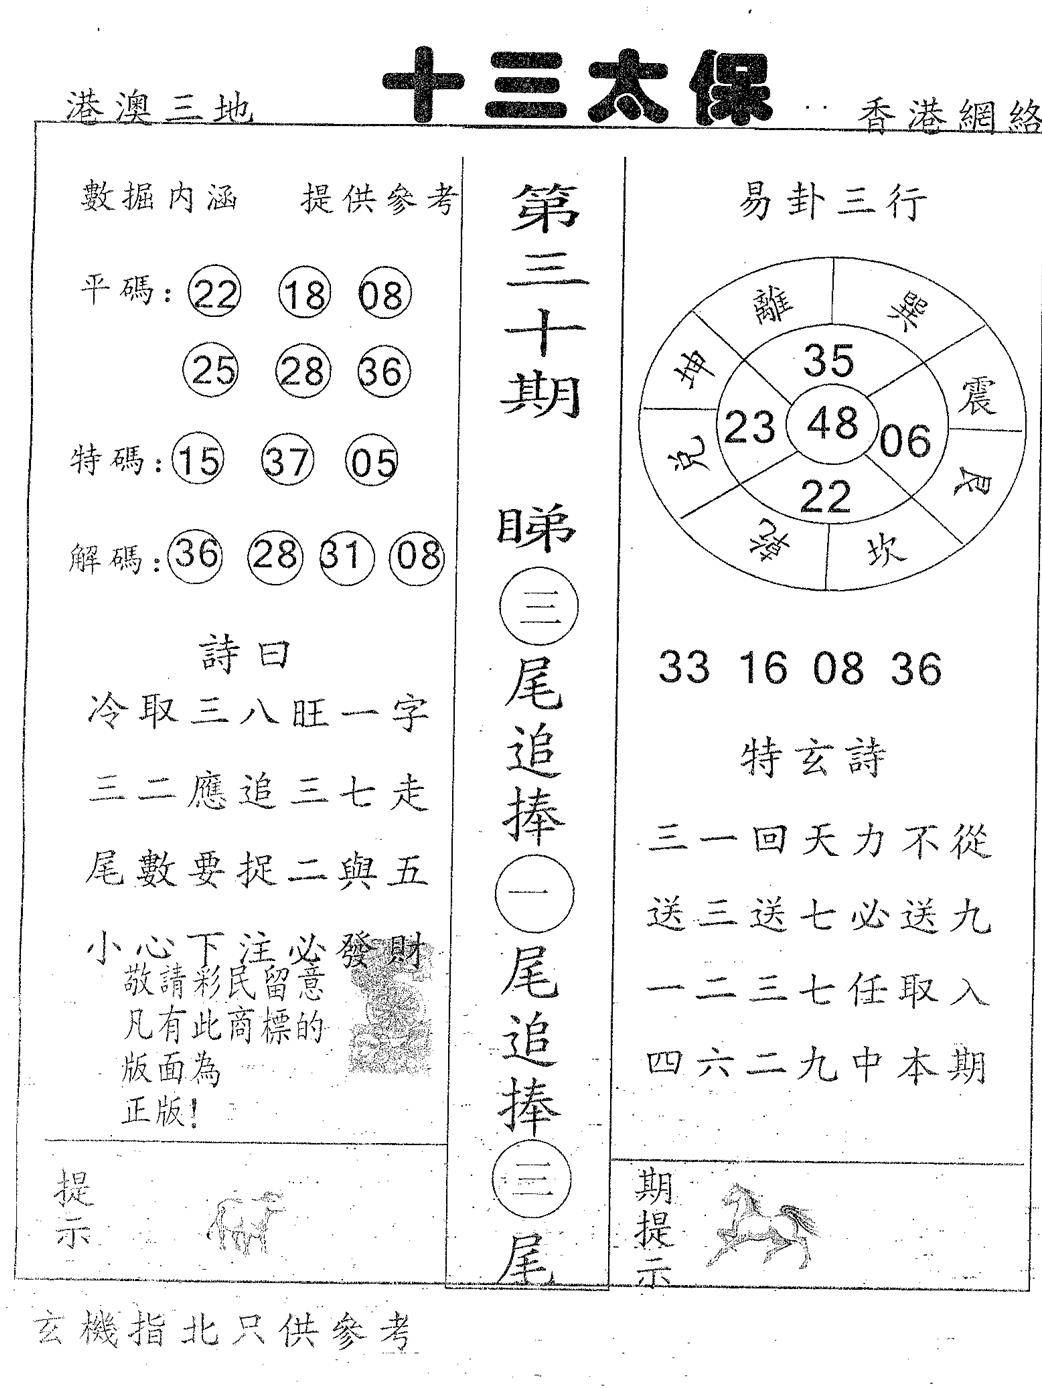 十三太保
港澳三地
香港網絡
數掘内涵 提供參考
平碼: 22 18 08
25 28 36
特碼: 15 37 05
解碼: 36 28 31 08
詩曰
冷取三八旺一字
三二應追三七走
尾數要捉二與五
小心下注必發財
敬請彩民留意
凡有此商標的
版面為
正版!
提示
第三十期
睇三尾追捧一尾追捧三尾
易卦三行
離 巽
坤 35 震
23 48 06
兌 22 艮
乾 坎
33 16 08 36
特玄詩
三一回天力不從
送三送七必送九
一二三七任取入
四六二九中本期
期提示
玄機指北只供參考